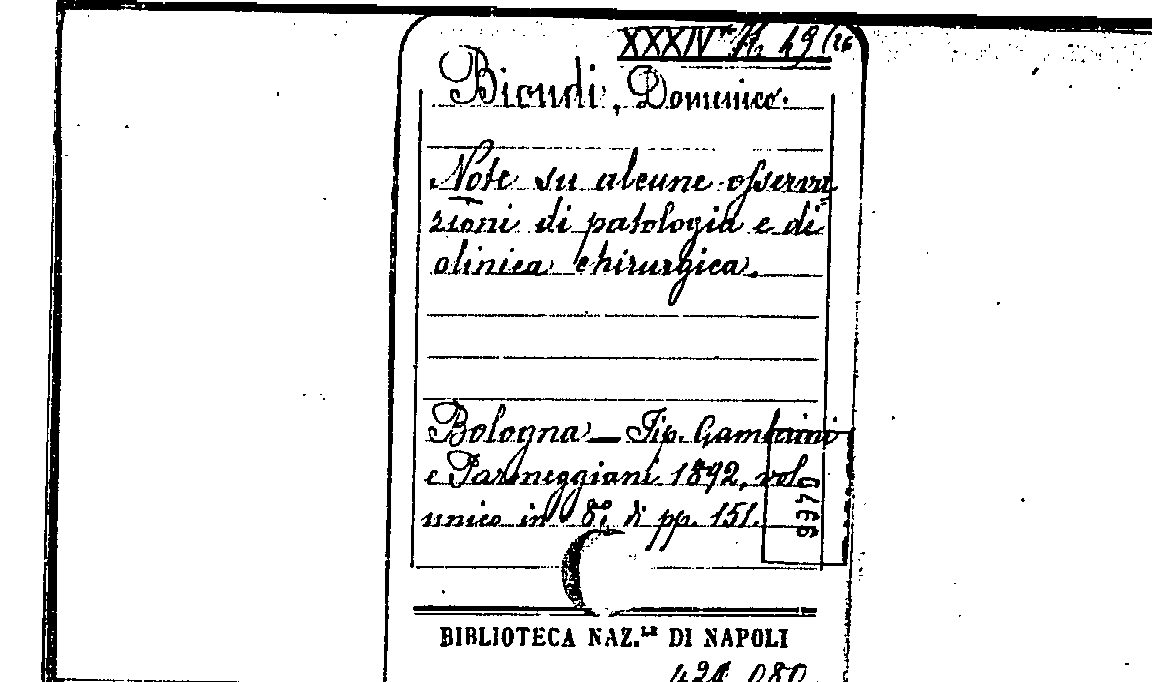 XXXIVª A. 49 (26
Biondi, Domenico.
Note su alcune osserva
zioni di patologia e di
clinica chirurgica.
Bologna – Tip. Gamberini
e Parmeggiani 1892, vol.
unico in 8°, di pp. 151.
0466
BIBLIOTECA NAZ.LE DI NAPOLI
424 080